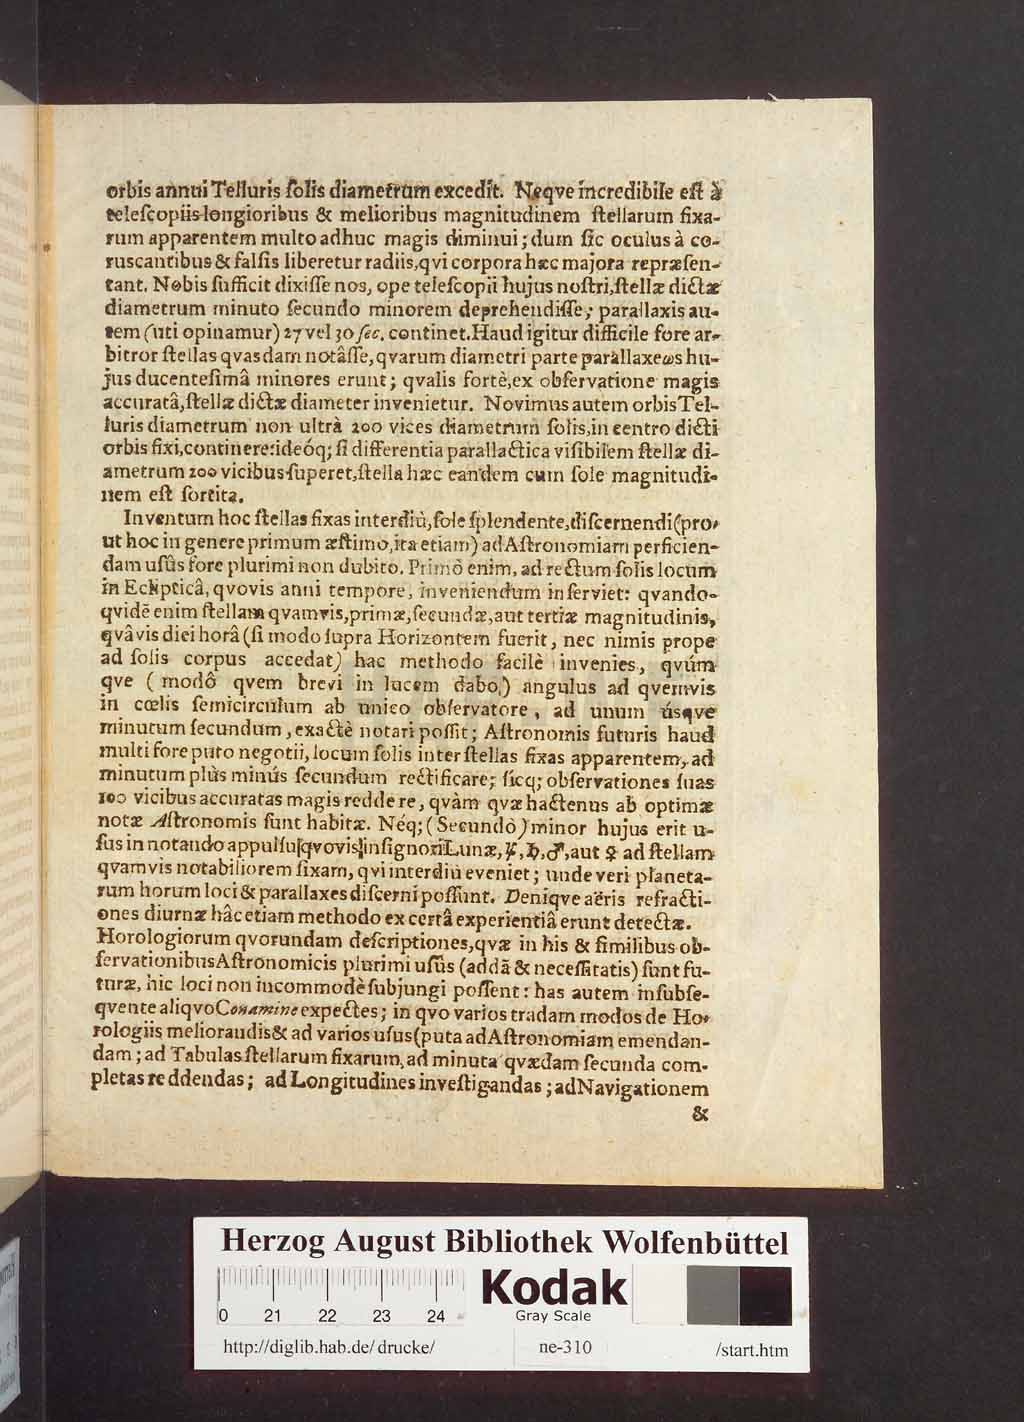 orbis annui Telluris ſolis diametrum excedit. Neqve incredibile eſt à
teleſcopiis longioribus & melioribus magnitudinem ſtellarum fixa-
rum apparentem multo adhuc magis diminui; dum ſic oculus à co-
ruscantibus & falſis liberetur radiis, qvi corpora hæc majora repræſen-
tant. Nobis ſufficit dixiſſe nos, ope teleſcopii hujus noſtri, ſtellæ dictæ
diametrum minuto ſecundo minorem deprehendiſſe; parallaxis au-
tem (uti opinamur) 27 vel 30 ſec. continet. Haud igitur difficile fore ar-
bitror ſtellas qvasdam notâſſe, qvarum diametri parte parallaxeωs hu-
jus ducenteſimâ minores erunt; qvalis fortè, ex obſervatione magis
accuratâ, ſtellæ dictæ diameter invenietur. Novimus autem orbis Tel-
luris diametrum non ultrà 200 vices diametrum ſolis, in centro dicti
orbis fixi, continere: ideóq; ſi differentia parallactica viſibilem ſtellæ di-
ametrum 200 vicibus ſuperet, ſtella hæc eandem cum ſole magnitudi-
nem eſt ſortita.
Inventum hoc ſtellas fixas interdiù, ſole ſplendente, diſcernendi (pro-
ut hoc in genere primum æſtimo, ita etiam) ad Aſtronomiam perficien-
dam uſûs fore plurimi non dubito. Primò enim, ad rectum ſolis locum
in Eclipticâ, qvovis anni tempore, inveniendum inſerviet: qvando-
qvidē enim ſtellam qvamvis, primæ, ſecundæ, aut tertiæ magnitudinis,
qvâvis diei horâ (ſi modo ſupra Horizontem fuerit, nec nimis prope
ad ſolis corpus accedat) hac methodo facilè invenies, qvúm
qve (modô qvem brevi in lucem dabo,) angulus ad qvemvis
in cœlis ſemicirculum ab unico obſervatore, ad unum úsqve
minutum ſecundum, exactè notari poſſit; Aſtronomis futuris haud
multi fore puto negotii, locum ſolis inter ſtellas fixas apparentem, ad
minutum plùs minús ſecundum rectificare; ſicq; obſervationes ſuas
100 vicibus accuratas magis reddere, qvàm qvæ hactenus ab optimæ
notæ Aſtronomis ſunt habitæ. Néq; (Secundò) minor hujus erit u-
ſus in notando appulſu [qvovis] inſigniori Lunæ, ♃, ♄, ♂, aut ♀ ad ſtellam
qvamvis notabiliorem fixam, qvi interdiù eveniet; unde veri planeta-
rum horum loci & parallaxes diſcerni poſſunt. Deniqve aëris refracti-
ones diurnæ hâc etiam methodo ex certâ experientiâ erunt detectæ.
Horologiorum qvorundam deſcriptiones, qvæ in his & ſimilibus ob-
ſervationibus Aſtronomicis plurimi uſûs (addā & neceſſitatis) ſunt fu-
turæ, hic loci non incommodè ſubjungi poſſent: has autem in ſubſe-
qvente aliqvo Conamine expectes; in qvo varios tradam modos de Ho-
rologiis meliorandis & ad varios uſus (puta ad Aſtronomiam emendan-
dam; ad Tabulas ſtellarum fixarum, ad minuta qvædam ſecunda com-
pletas reddendas; ad Longitudines inveſtigandas; ad Navigationem
&
Herzog August Bibliothek Wolfenbüttel
Kodak
0 21 22 23 24
Gray Scale
http://diglib.hab.de/ drucke/ ne-310 /start.htm